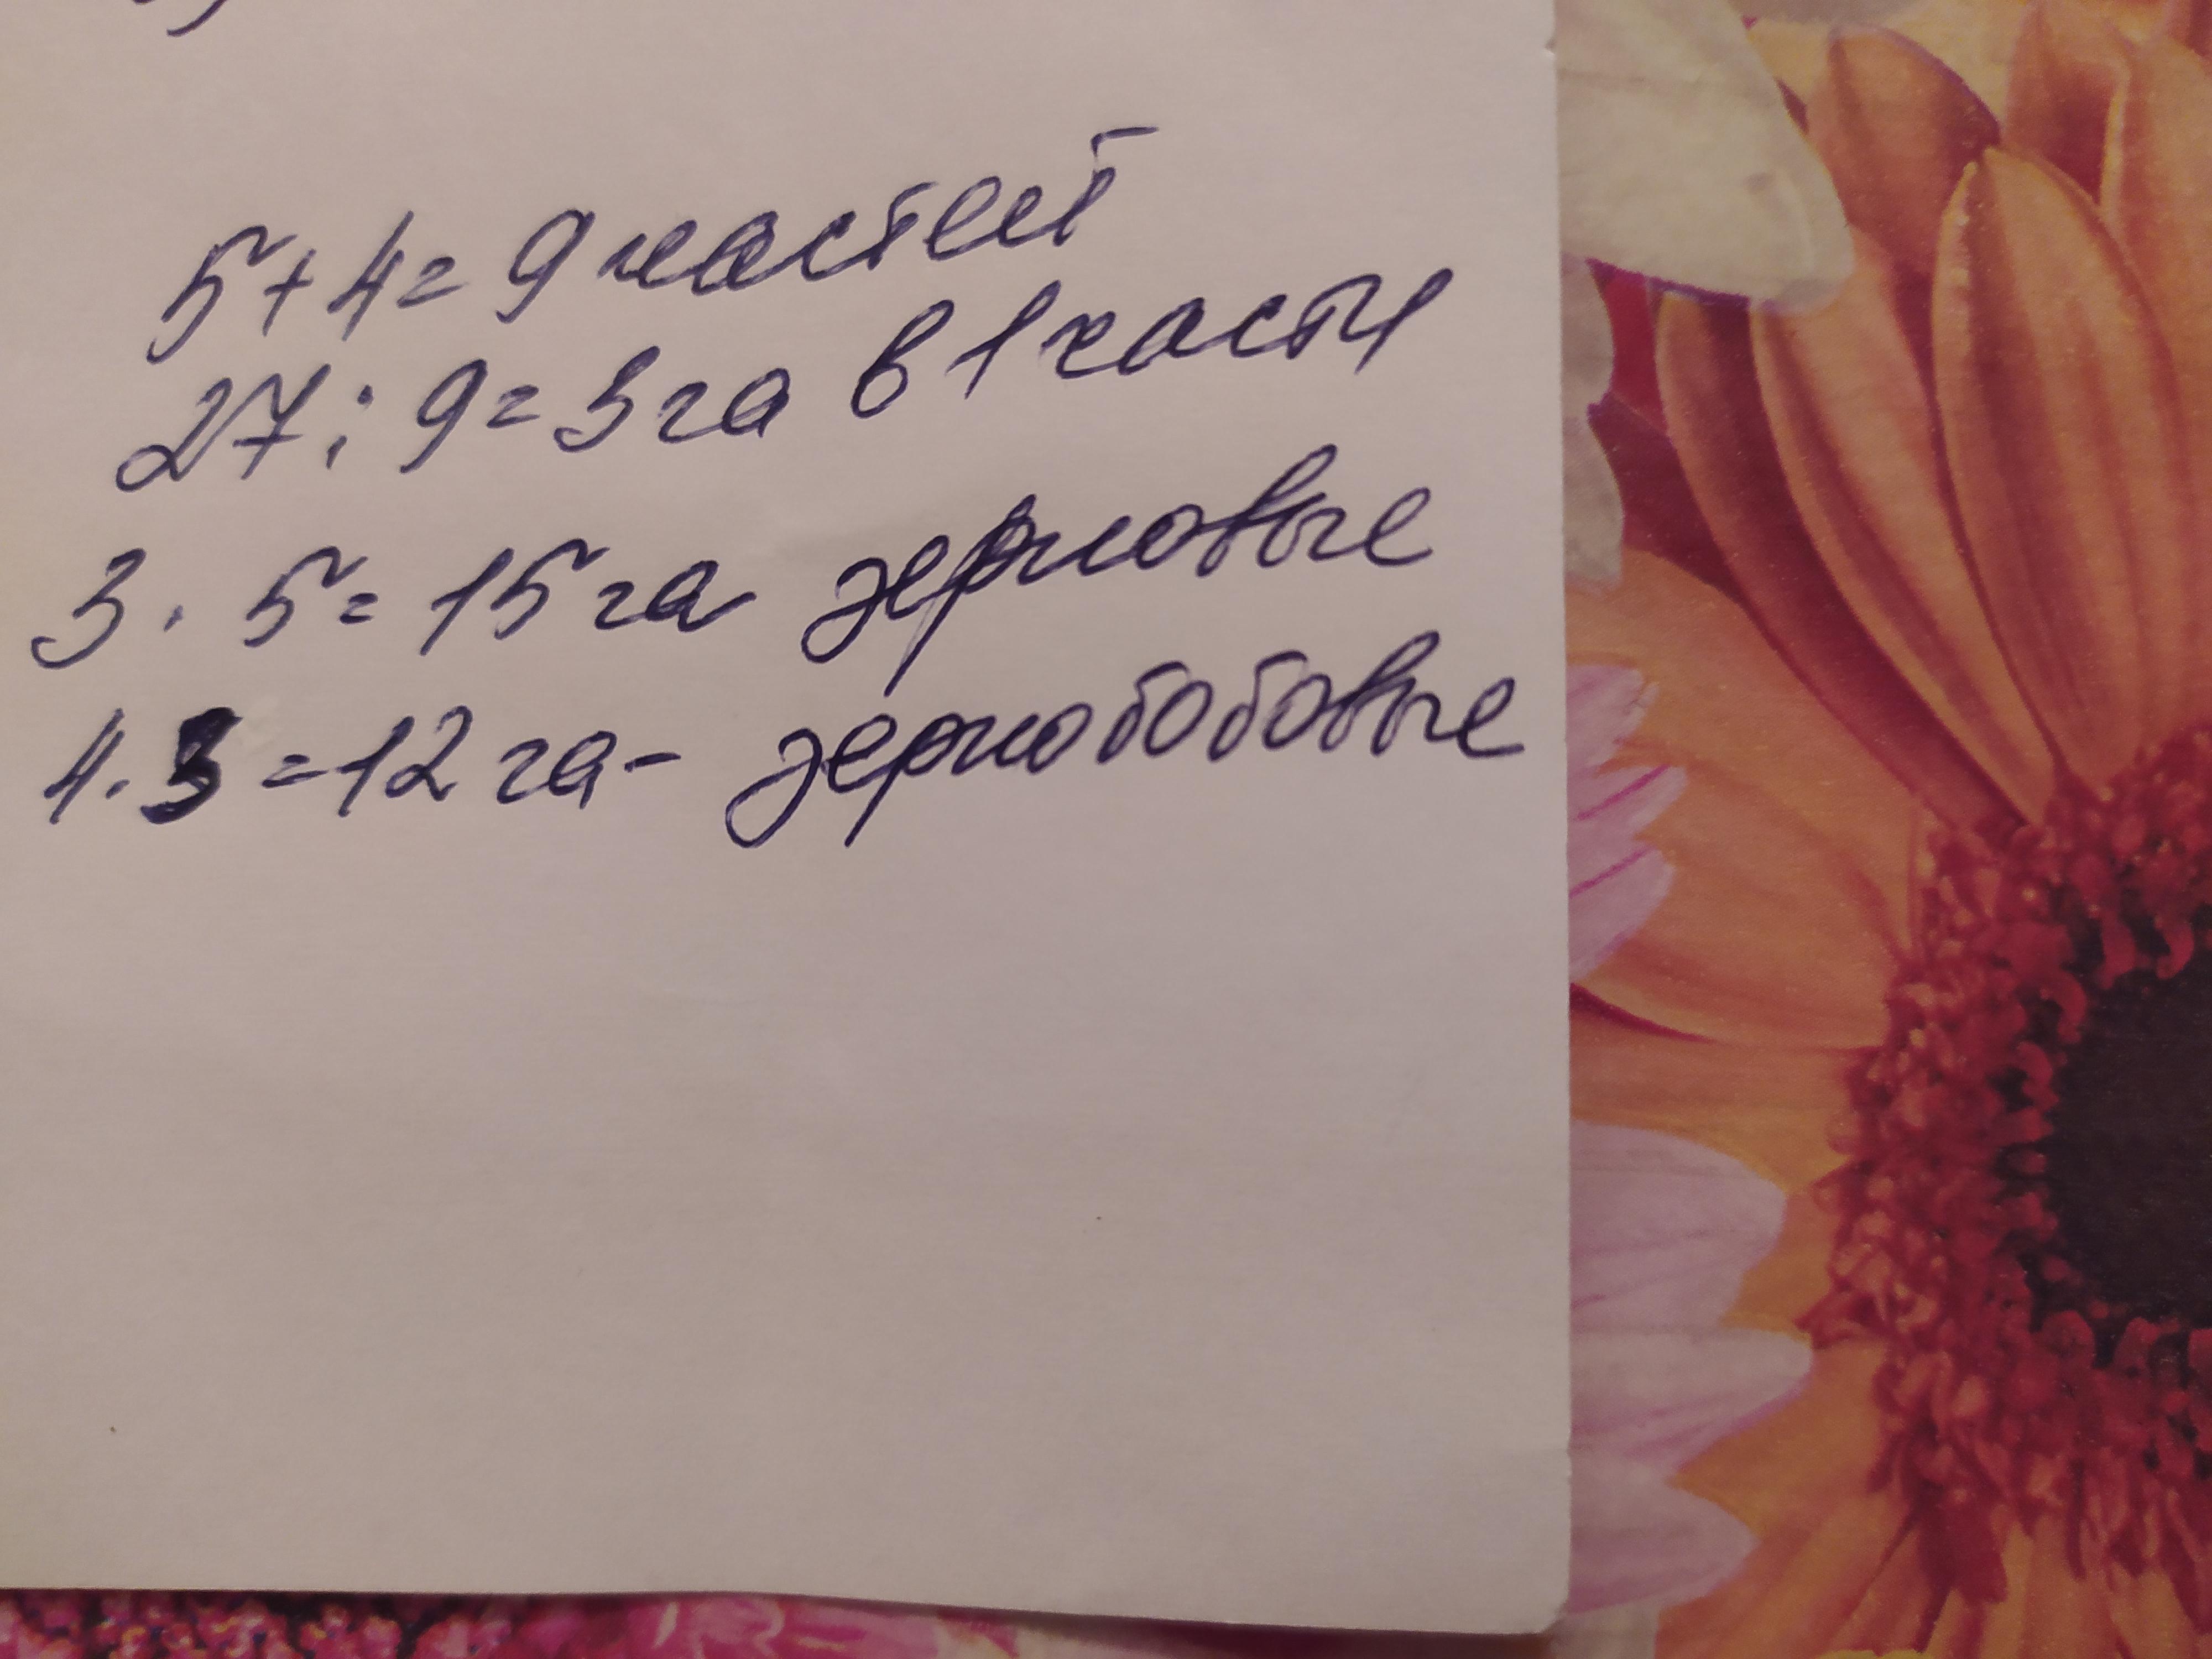 5+4=9 частей
27:9=3 га в 1 части
3·5=15 га зерновые
4·3=12 га- зернобобовые